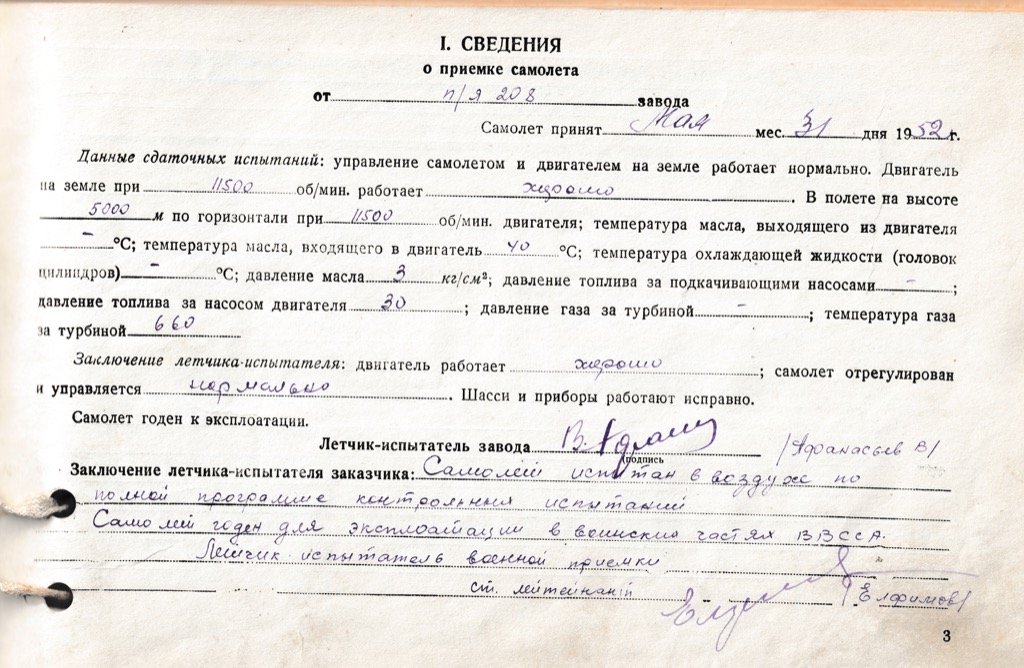 I. СВЕДЕНИЯ
о приемке самолета
от п/я 208 завода
Самолет принят Мая мес. 31 дня 1952 г.
Данные сдаточных испытаний: управление самолетом и двигателем на земле работает нормально. Двигатель
на земле при 11500 об/мин. работает хорошо. В полете на высоте
5000 м по горизонтали при 11500 об/мин. двигателя; температура масла, выходящего из двигателя
- °С; температура масла, входящего в двигатель 40 °С; температура охлаждающей жидкости (головок
цилиндров) - °С; давление масла 3 кг/см²; давление топлива за подкачивающими насосами - ;
давление топлива за насосом двигателя 30; давление газа за турбиной - ; температура газа
за турбиной 660
Заключение летчика-испытателя: двигатель работает хорошо; самолет отрегулирован
и управляется нормально. Шасси и приборы работают исправно.
Самолет годен к эксплоатации.
Летчик-испытатель завода /Афанасьев В/
подпись
Заключение летчика-испытателя заказчика: Самолет испытан в воздухе по
полной программе контрольных испытаний
Самолет годен для эксплоатации в воинских частях ВВССА.
Летчик-испытатель военной приемки
ст. лейтенант /Елфимов/
3